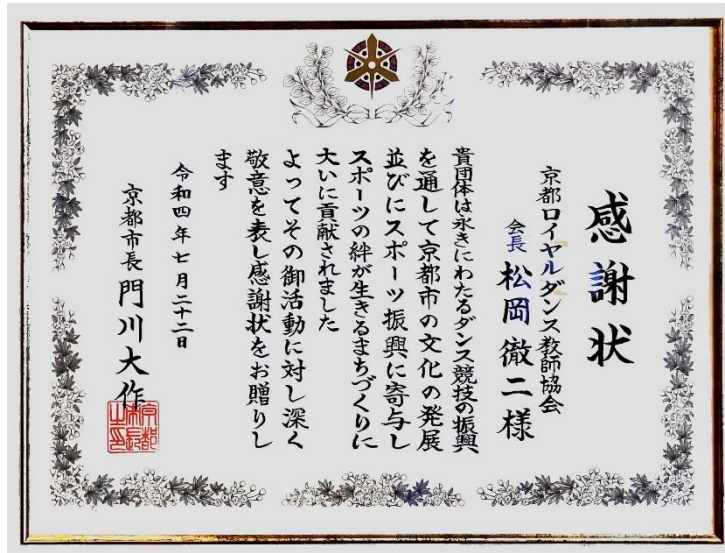 感謝状
京都ロイヤルダンス教師協会
会長 松岡徹二様
貴団体は永きにわたるダンス競技の振興
を通して京都市の文化の発展
並びにスポーツ振興に寄与し
スポーツの絆が生きるまちづくりに
大いに貢献されました
よってその御活動に対し深く
敬意を表し感謝状をお贈りし
ます
令和四年七月二十二日
京都市長 門川大作
京都市長之印